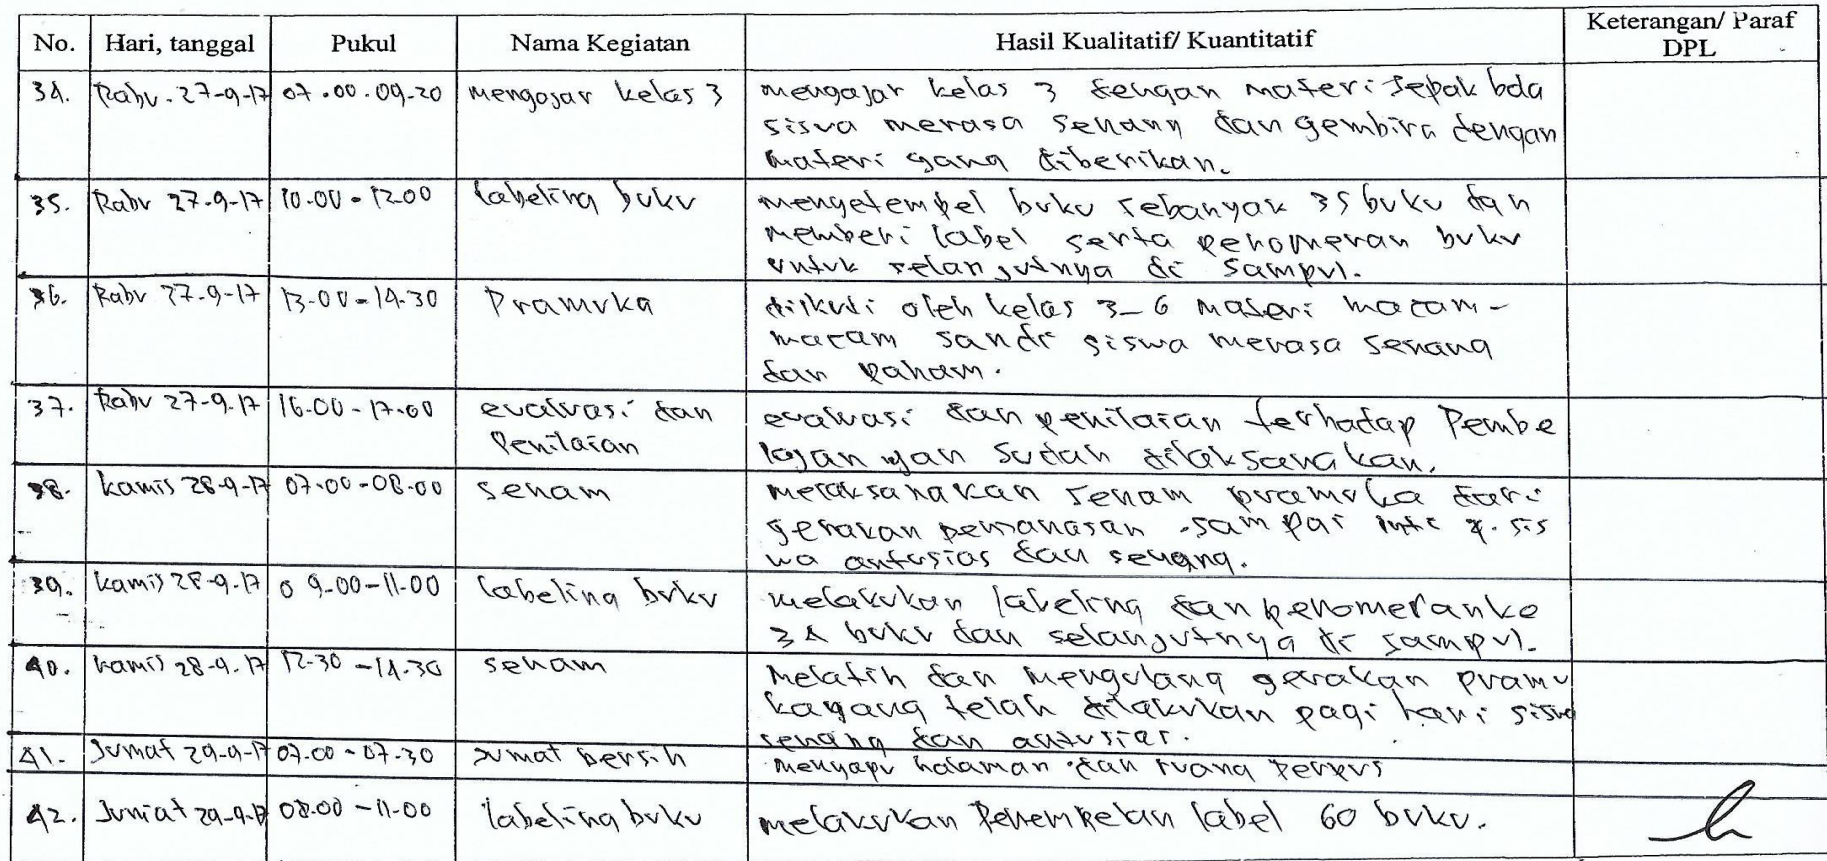 No. Hari, tanggal Pukul Nama Kegiatan Hasil Kualitatif/ Kuantitatif Keterangan/ Paraf DPL
34. Rabu. 27-9-17 07.00.09.20 mengajar kelas 3 mengajar kelas 3 dengan materi sepak bola
siswa merasa senang dan gembira dengan
materi yang diberikan.
35. Rabu 27-9-17 10.00 - 12.00 labeling buku mengetempel buku sebanyak 35 buku dan
memberi label serta penomeran buku
untuk selanjutnya di sampul.
36. Rabu 27-9-17 13.00 - 14.30 Pramuka diikuti oleh kelas 3-6 materi macam-
macam sandi siswa merasa senang
dan paham.
37. Rabu 27-9-17 16.00 - 17.00 evaluasi dan evaluasi dan penilaian terhadap Pembe
Penilaian lajan yan sudah dilaksanakan.
38. Kamis 28-9-17 07.00 - 08.00 senam melaksanakan senam pramuka dari
gerakan pemanasan sampai inti sis
wa antusias dan senang.
39. Kamis 28-9-17 09.00 - 11.00 labeling buku melakukan labeling dan penomeran ke
34 buku dan selanjutnya di sampul.
40. Kamis 28-9-17 12.30 - 14.30 senam Melatih dan mengulang gerakan pramu
ka yang telah dilakukan pagi hari siswa
senang dan antusias.
41. Jumat 29-9-17 07.00 - 07.30 Jumat bersih menyapu halaman dan ruang perpus
42. Jumat 29-9-17 08.00 - 11.00 labeling buku melakukan Penempelan label 60 buku.